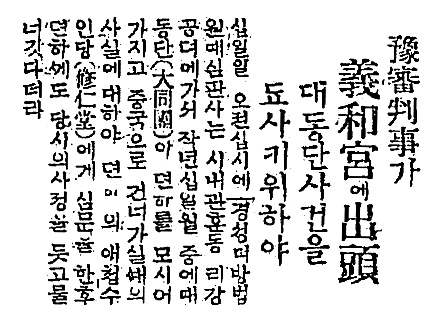 豫審判事가
義和宮에出頭
대동단사건을
됴사키위하야
십일일 오전십시에 경셩디방법
원예심판사는 시내관훈동 리강
공뎌에가셔 작년십일월 중에대
동단(大同團)이 뎐하를 모시어
가지고 중국으로 건너가실때의
사실에대하야 뎐하의 애첩수
인당(修仁堂)에게 심문을 한후
뎐하에도 당시의사정을 듯고물
너갓다더라